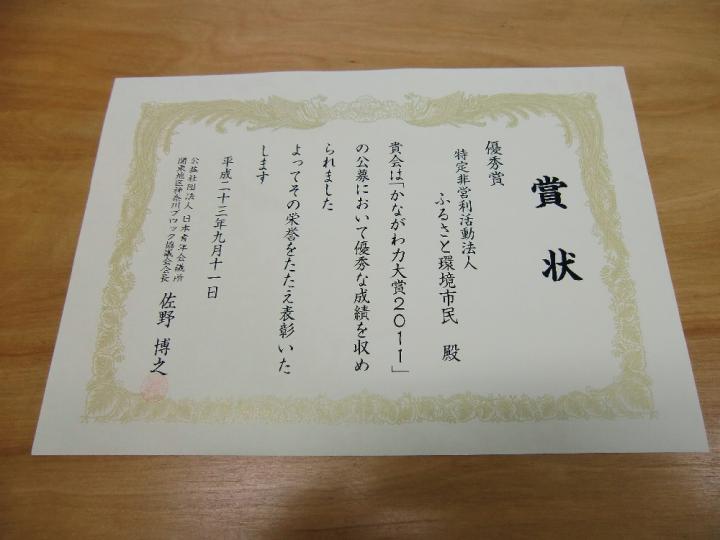 賞状
優秀賞
特定非営利活動法人
ふるさと環境市民 殿
貴会は「かながわ力大賞2011」
の公募において優秀な成績を収め
られました
よってその栄誉をたたえ表彰いた
します
平成二十三年九月十一日
公益社団法人 日本青年会議所
関東地区神奈川ブロック協議会会長 佐野 博之